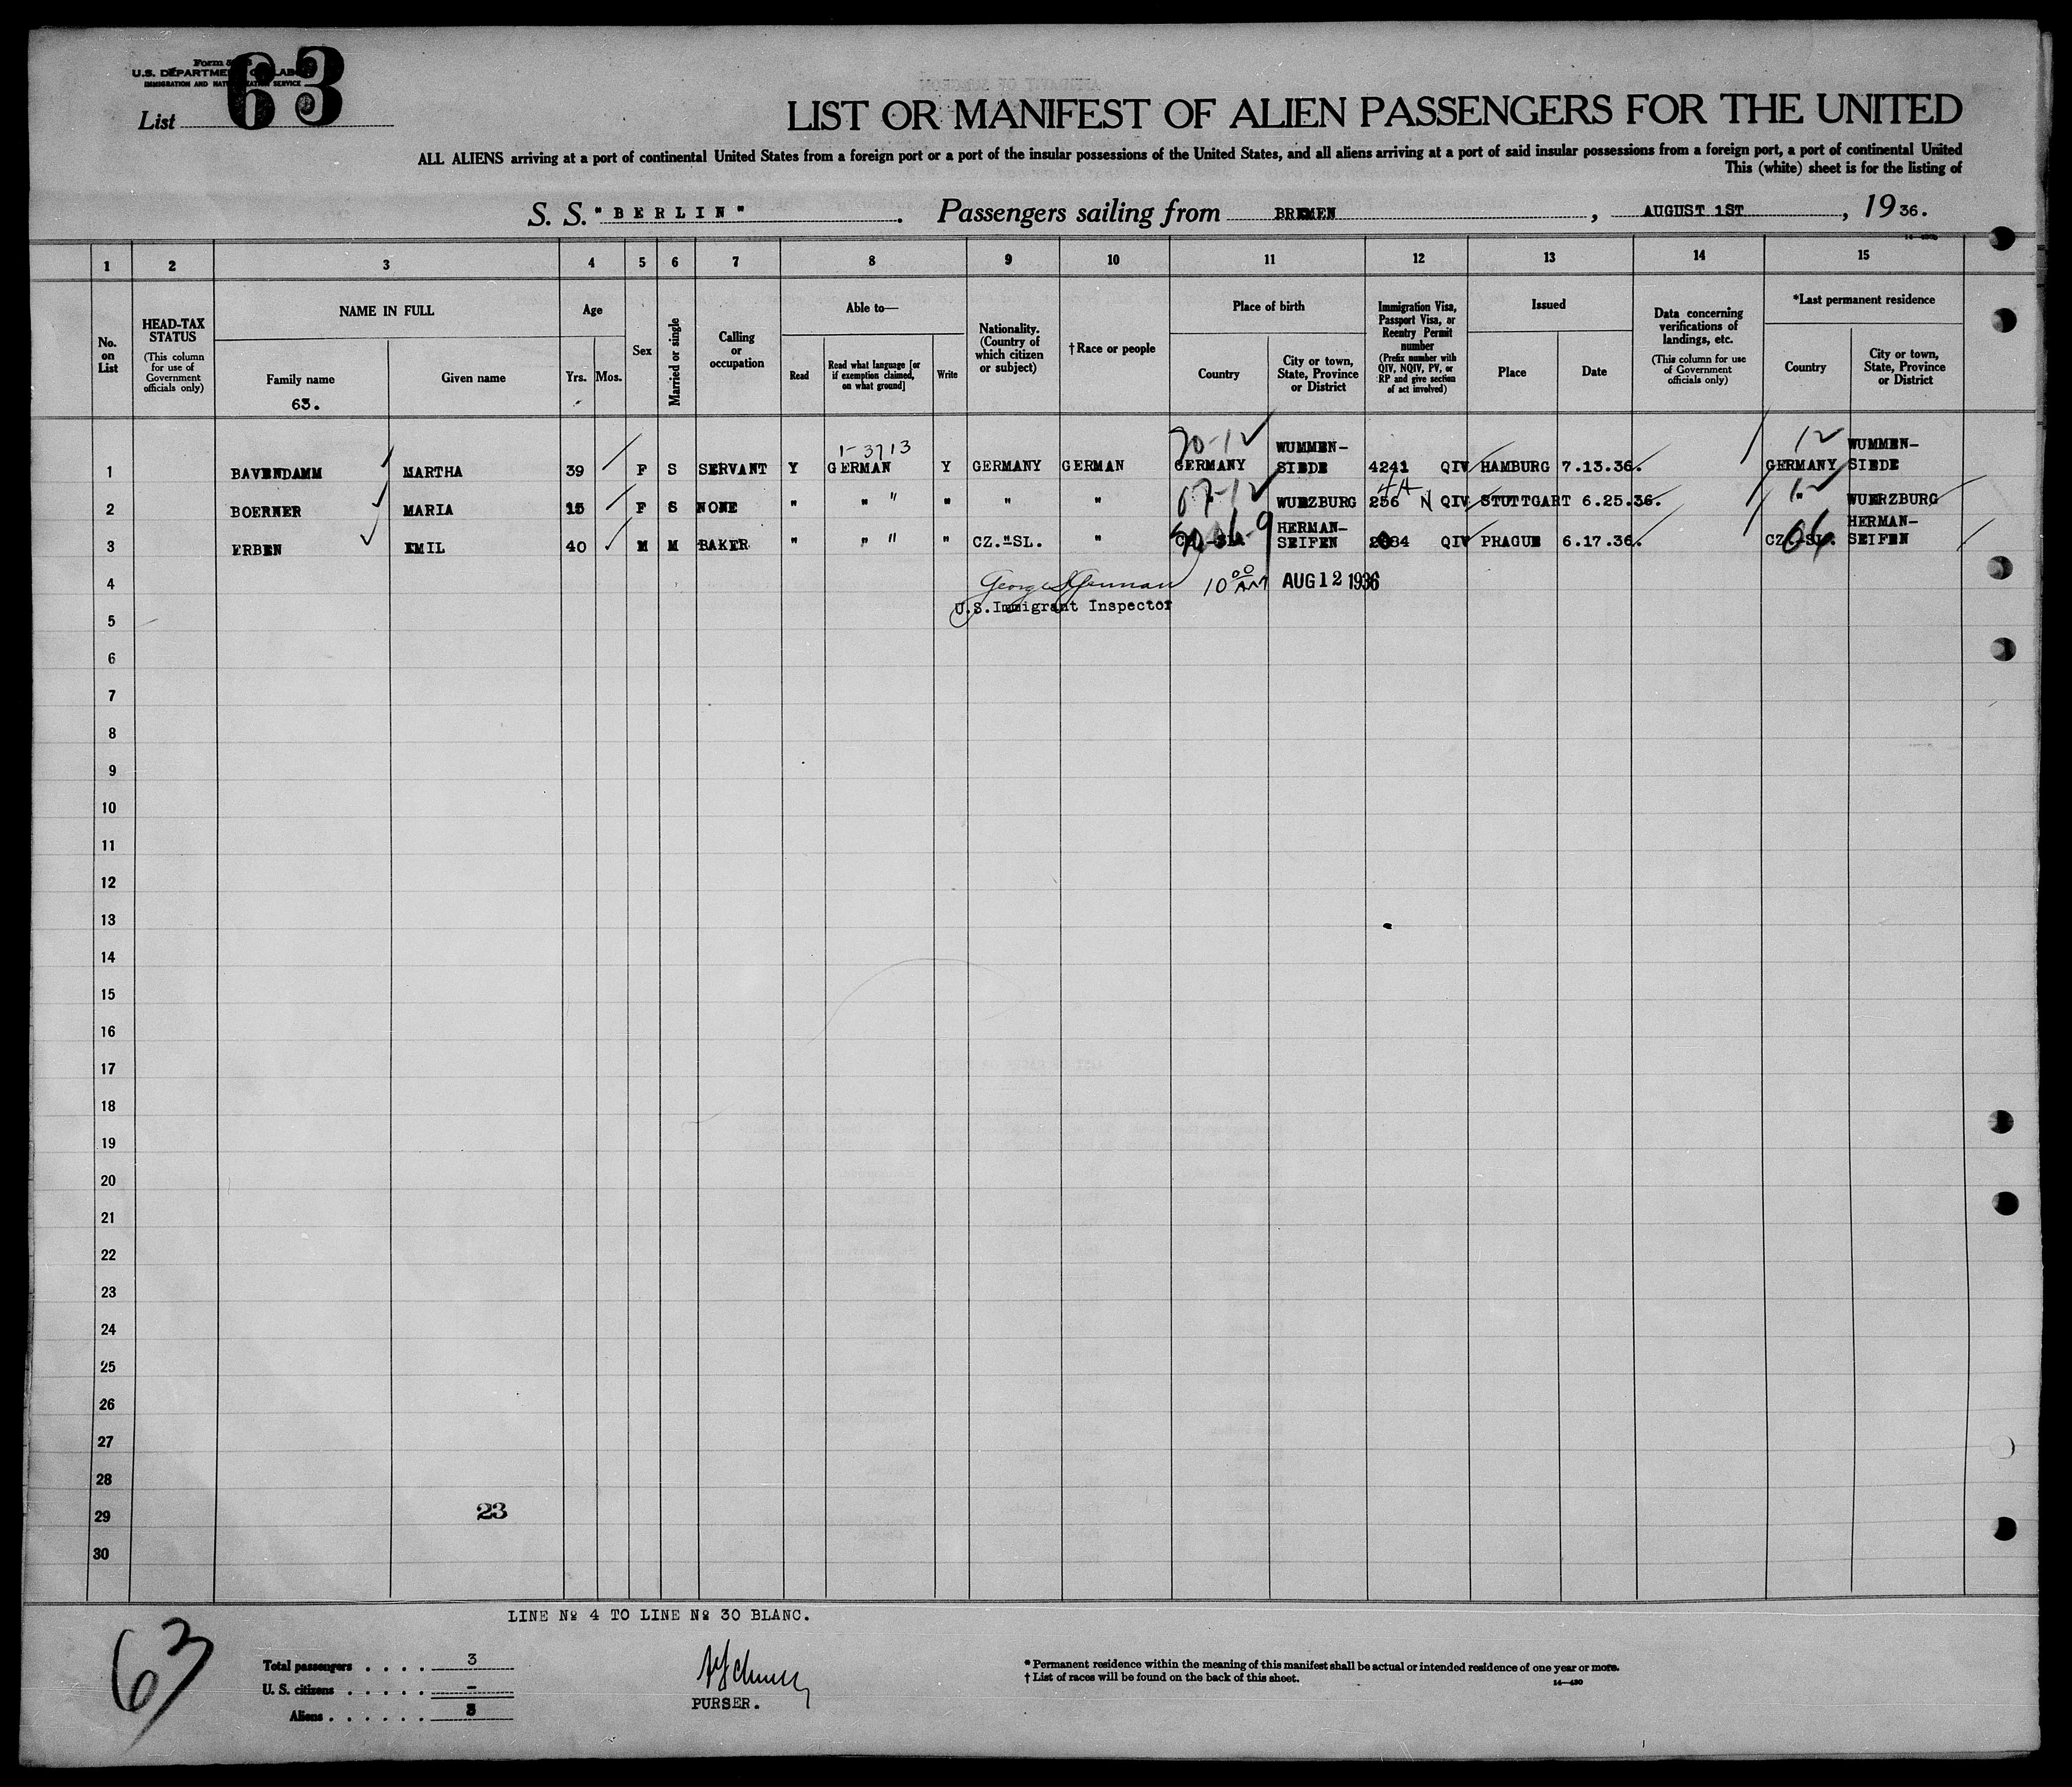 63
U.S. DEPARTMENT OF LABOR
IMMIGRATION AND NATURALIZATION SERVICE
List
LIST OR MANIFEST OF ALIEN PASSENGERS FOR THE UNITED
ALL ALIENS arriving at a port of continental United States from a foreign port or a port of the insular possessions of the United States, and all aliens arriving at a port of said insular possessions from a foreign port, a port of continental United
This (white) sheet is for the listing of
S. S. "BERLIN". Passengers sailing from BREMEN, AUGUST 1ST, 1936.
1 2 3 4 5 6 7 8 9 10 11 12 13 14 15
No. on List
HEAD-TAX STATUS (This column for use of Government officials only)
NAME IN FULL
Family name
63.
Given name
Age
Yrs. Mos.
Sex
Married or single
Calling or occupation
Able to—
Read
Read what language [or if exemption claimed, on what ground]
Write
Nationality. (Country of which citizen or subject)
†Race or people
Place of birth
Country
City or town, State, Province or District
Immigration Visa, Passport Visa, or Reentry Permit number (Prefix number with QIV, NQIV, PV, or RP and give section of act involved)
Issued
Place
Date
Data concerning verifications of landings, etc. (This column for use of Government officials only)
*Last permanent residence
Country
City or town, State, Province or District
1-3713
1 BAVENDAMM MARTHA 39 F S SERVANT Y GERMAN Y GERMANY GERMAN GERMANY WUMMEN-SIEDE 4241 QIV HAMBURG 7.13.36. GERMANY WUMMEN-SIEDE
2 BOERNER MARIA 15 F S NONE " " " " " " WUERZBURG 256 N QIV STUTTGART 6.25.36. " WUERZBURG
3 ERBEN EMIL 40 M M BAKER " " " " CZ.-SL. " CZ.-SL. HERMAN-SEIFEN QIV PRAGUE 6.17.36. CZ.-SL. HERMAN-SEIFEN
4 10 00 AM AUG 12 1936
U.S. Immigrant Inspector
5
6
7
8
9
10
11
12
13
14
15
16
17
18
19
20
21
22
23
24
25
26
27
28
29 23
30
LINE № 4 TO LINE № 30 BLANC.
63
Total passengers . . . . 3
U. S. citizens . . . . . -
Aliens . . . . . . 3
PURSER.
* Permanent residence within the meaning of this manifest shall be actual or intended residence of one year or more.
† List of races will be found on the back of this sheet.